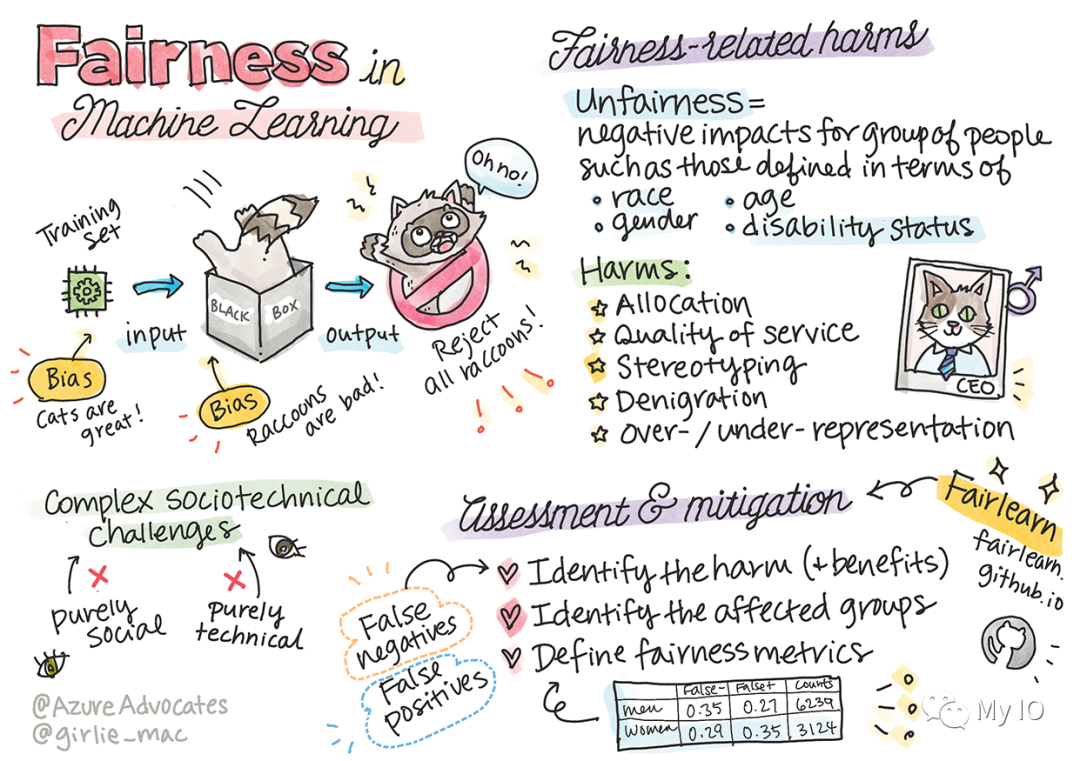 Fairness in
Machine Learning
Training
set
input
BLACK
BOX
output
Oh no!
Reject
all raccoons!
Bias
cats are
great!
Bias
Raccoons
are bad!
Fairness-related harms
Unfairness =
negative impacts for group of people
such as those defined in terms of
• race
• age
• gender
• disability status
Harms:
Allocation
Quality of service
Stereotyping
Denigration
over- / under- representation
CEO
Complex sociotechnical
challenges
purely
social
purely
technical
@AzureAdvocates
@girlie_mac
Assessment & mitigation
Fairlearn
fairlearn.
github.io
Identify the harm (+ benefits)
Identify the affected groups
Define fairness metrics
False
negatives
False
positives
False- False+ counts
men 0.35 0.27 6239
Women 0.29 0.35 3124
My IO